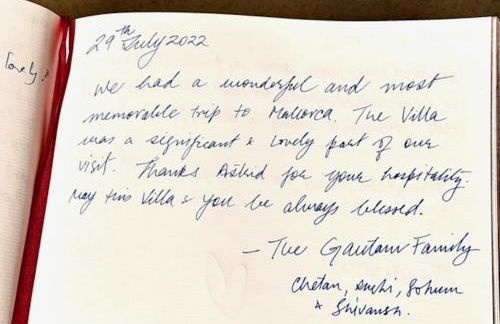 lovely?
29th July 2022
We had a wonderful and most
memorable trip to Mallorca. The Villa
was a significant & lovely part of our
visit. Thanks Astrid for your hospitality.
May this Villa & you be always blessed.
– The Gautam Family
Chetan, Suchi, Sohum
& Shivansh.